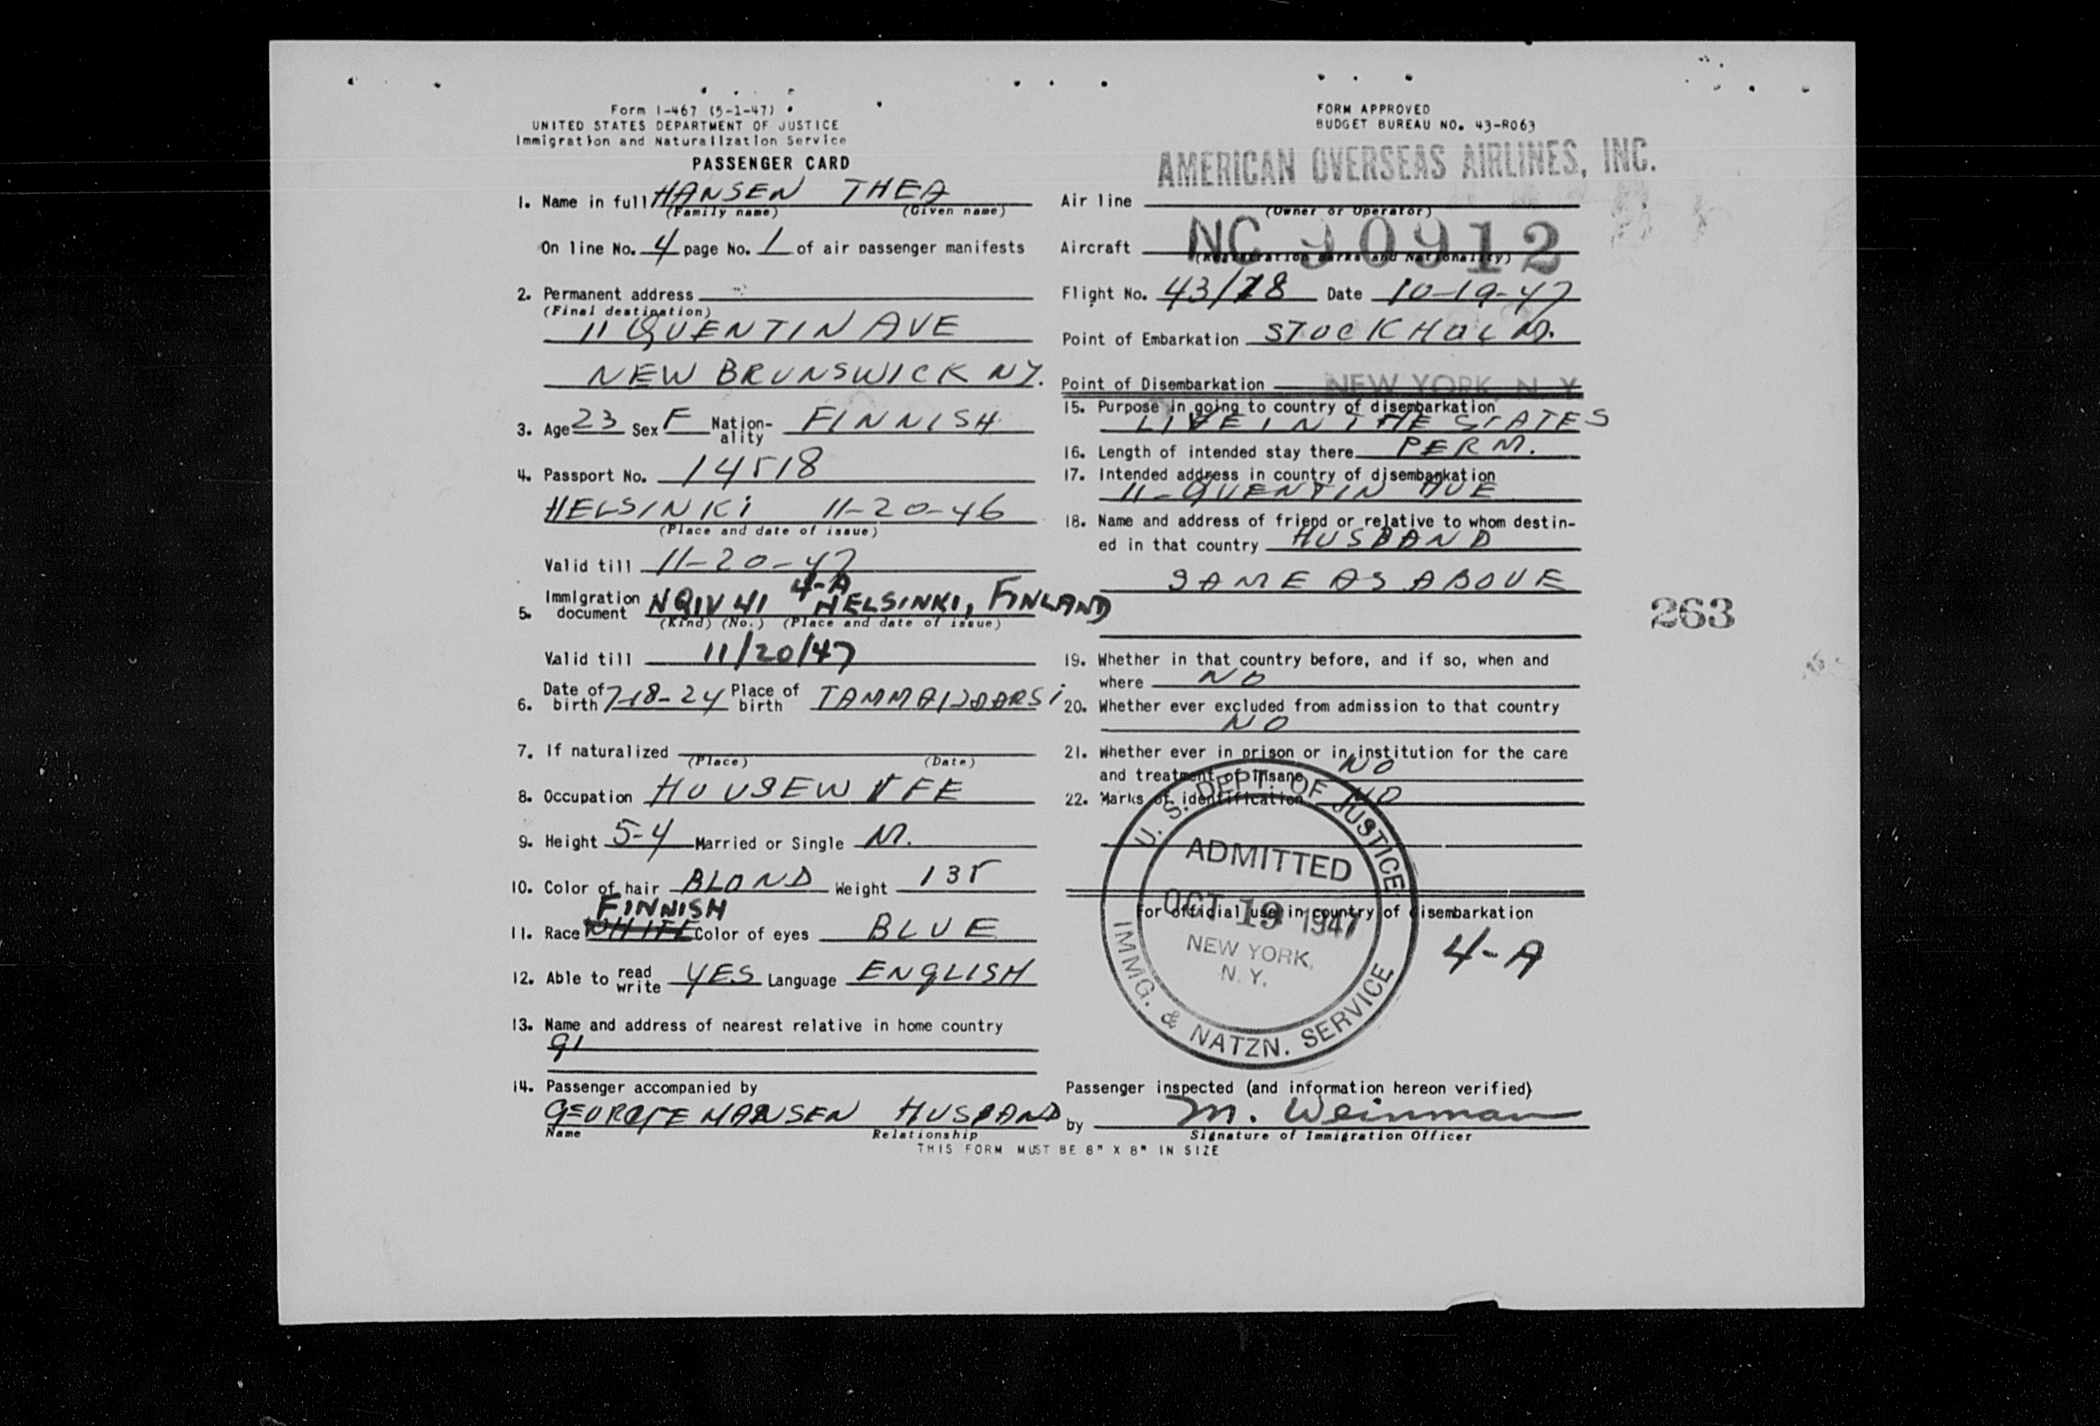 Form I-467 (5-1-47)
UNITED STATES DEPARTMENT OF JUSTICE
Immigration and Naturalization Service
PASSENGER CARD
1. Name in full HANSEN THEA
(Family name) (Given name)
On line No. 4 page No. 1 of air passenger manifests
2. Permanent address
(Final destination)
11 QUENTIN AVE
NEW BRUNSWICK NY.
3. Age 23 Sex F Nation-ality FINNISH
4. Passport No. 14518
HELSINKI 11-20-46
(Place and date of issue)
Valid till 11-20-47
4-A
5. Immigration document NQIV 41 HELSINKI, FINLAND
(Kind) (No.) (Place and date of issue)
Valid till 11/20/47
6. Date of birth 7-18-24 Place of birth
7. If naturalized
(Place) (Date)
8. Occupation HOUSEWIFE
9. Height 5-4 Married or Single M.
10. Color of hair BLOND Weight 135
FINNISH
11. Race WHITE Color of eyes BLUE
12. Able to read write YES Language ENGLISH
13. Name and address of nearest relative in home country
14. Passenger accompanied by
GEORGE HANSEN HUSBAND
Name Relationship
THIS FORM MUST BE 8" X 8" IN SIZE
FORM APPROVED
BUDGET BUREAU NO. 43-R063
AMERICAN OVERSEAS AIRLINES, INC.
Air line
(Owner or Operator)
Aircraft NC 90912
(Registration marks and Nationality)
Flight No. 43/18 Date 10-19-47
Point of Embarkation STOCKHOLM.
Point of Disembarkation NEW YORK, N. Y.
15. Purpose in going to country of disembarkation
LIVE IN THE STATES
16. Length of intended stay there PERM.
17. Intended address in country of disembarkation
11-QUENTIN AVE
18. Name and address of friend or relative to whom destin-
ed in that country HUSBAND
SAME AS ABOVE
263
19. Whether in that country before, and if so, when and
where NO
20. Whether ever excluded from admission to that country
NO
21. Whether ever in prison or in institution for the care
and treatment of insane NO
22. Marks of identification NO
U. S. DEPT. OF JUSTICE
ADMITTED
OCT 19 1947
NEW YORK,
N. Y.
IMMG. & NATZN. SERVICE
For official use in country of disembarkation
4-A
Passenger inspected (and information hereon verified)
by M. Weinman
Signature of Immigration Officer